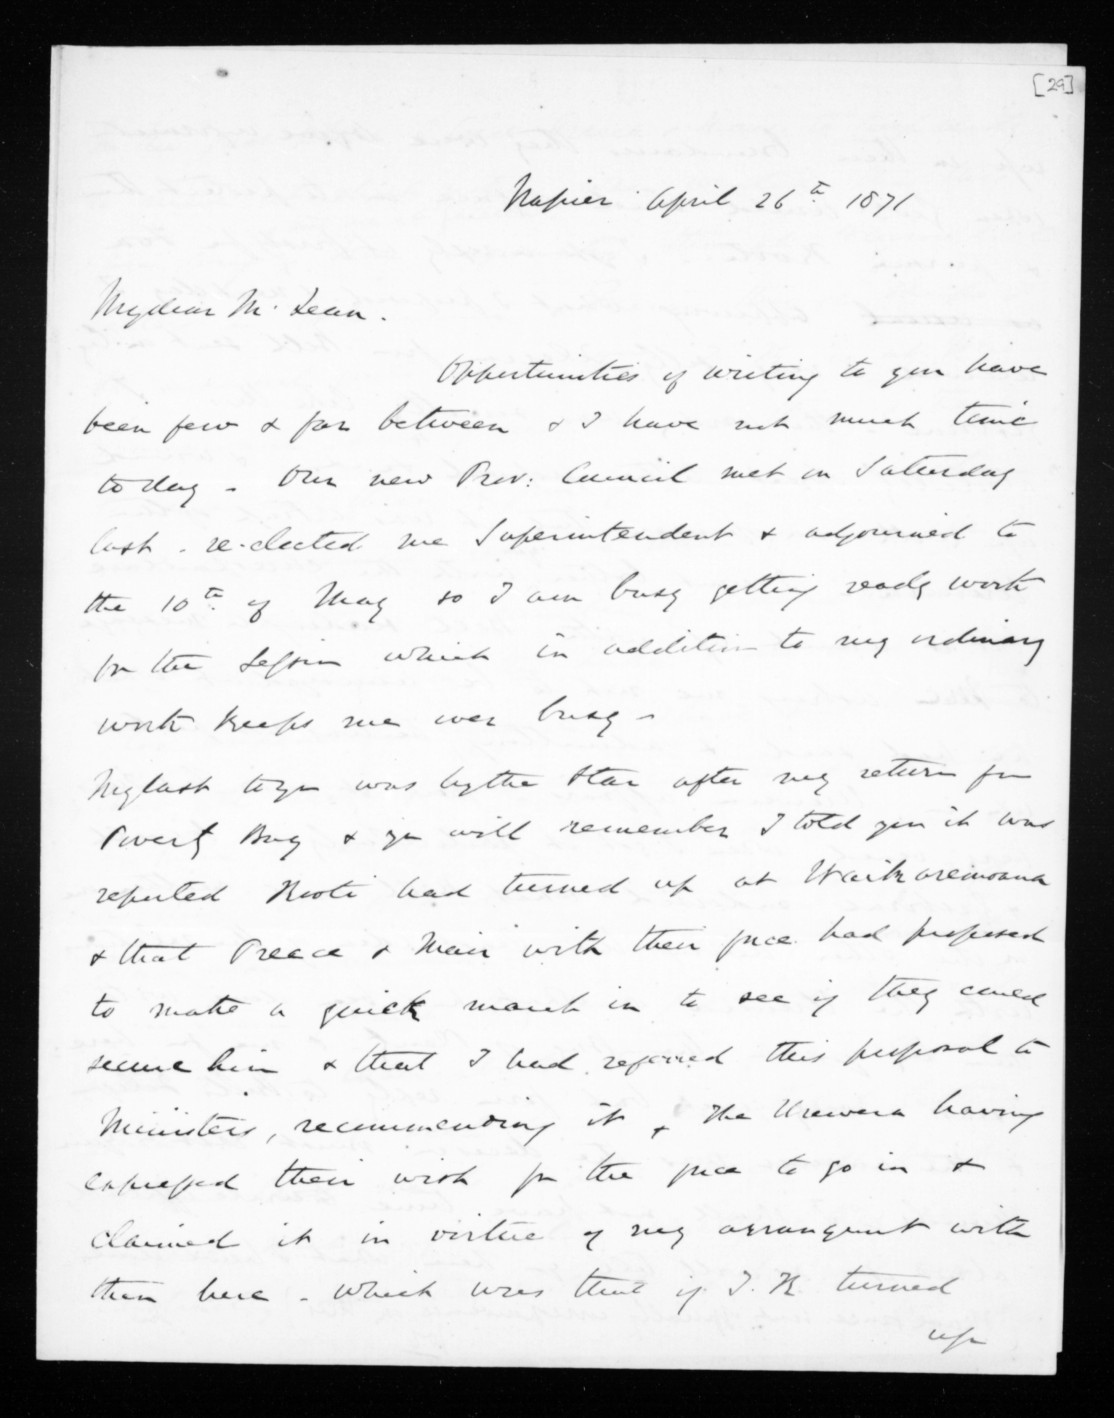 [29]
Napier April 26th 1871
My dear McLean.
Opportunities of writing to you have
been few & far between & I have not much time
to day - Our new Prov: Council met on Saturday
last - re-elected me Superintendent & adjourned to
the 10th of May so I am busy getting ready work
for the Session which in addition to my ordinary
work keeps me over busy -
My last to you was by the Star after my return from
Poverty Bay & you will remember I told you it was
reported Kooti had turned up at Waikaremoana
& that Preece & Mair with their force had proposed
to make a quick march in to see if they could
secure him & that I had referred this proposal to
Ministers, recommending it, the Urewera having
expressed their wish for the force to go in &
claimed it in virtue of my arrangement with
them here - which was that if T.K turned
up